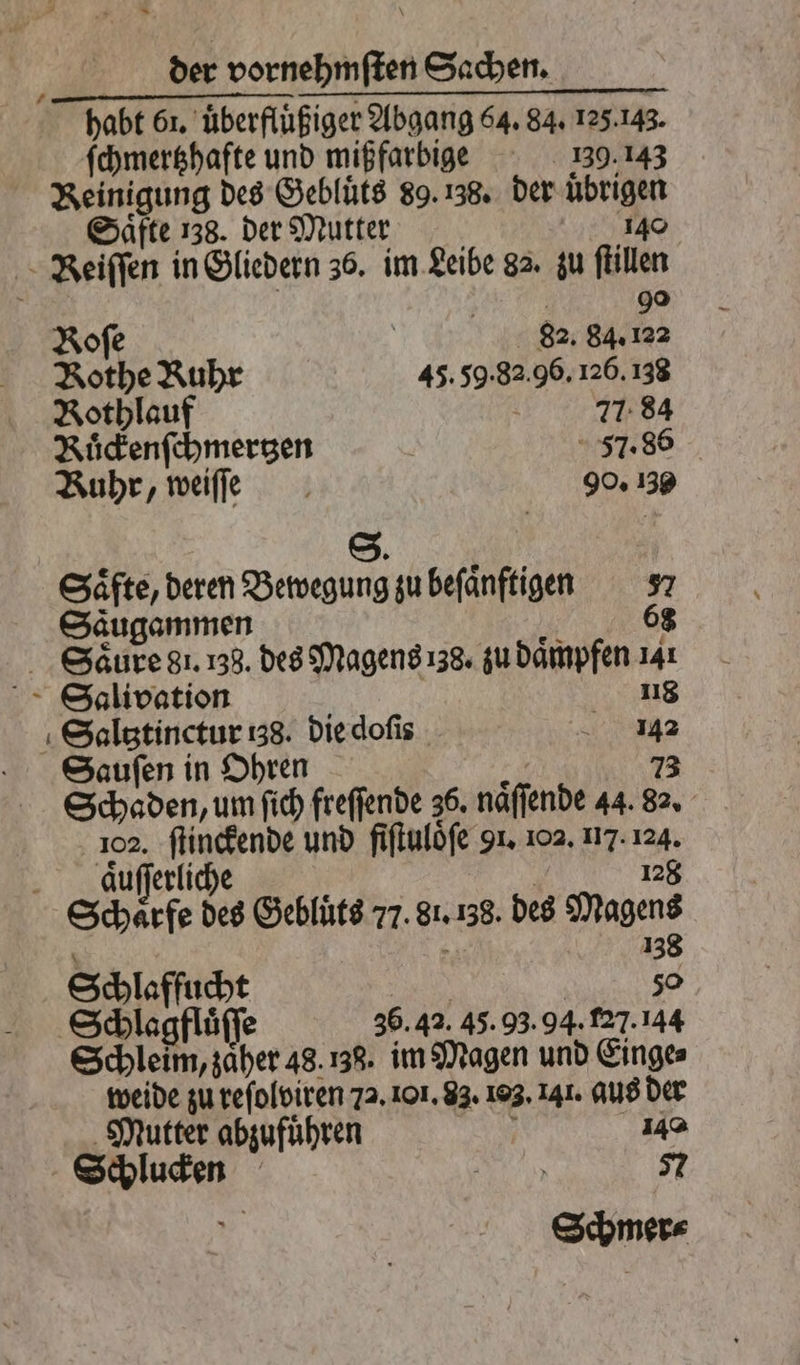 der vornehmſten Sachen.
habt 61. uͤberfluͤßiger Abgang 64. 84. 125.143.
ſchmertzhafte und mißfarbige 139.143
Reinigung des Gebluͤts 89. 138. der uͤbrigen
Saͤfte 138. der Mutter 140
Reiſſen in Gliedern 36. im Leibe 82. zu ſtillen
90
Roſe 82. 84. 122
Rothe Ruhr 45. 59.82.96. 126. 138
Rothlauf 77. 84
Ruͤckenſchmertzen 57. 86
Ruhr, weiſſe 90. 139
S.
Saͤfte, deren Bewegung zu beſaͤnftigen 57
Saͤugammen 68
Saͤure 81. 138. des Magens 138. zu daͤmpfen 141
Salivation 118
Saltztinctur 138. die doſis 142
Sauſen in Ohren 73
Schaden, um ſich freſſende 36. naͤſſende 44. 82.
102. ſtinckende und fiſtuloͤſe 91. 102. 117. 124.
aͤuſſerliche 128
Schaͤrfe des Gebluͤts 77. 81. 138. des Magens
138
Schlafſucht 50
Schlagfluͤſſe 36. 42. 45. 93. 94. 127. 144
Schleim, zaͤher 48. 138. im Magen und Einge⸗
weide zu reſolviren 72. 101. 83. 103. 141. aus der
Mutter abzufuͤhren 140
Schlucken 57
Schmer⸗